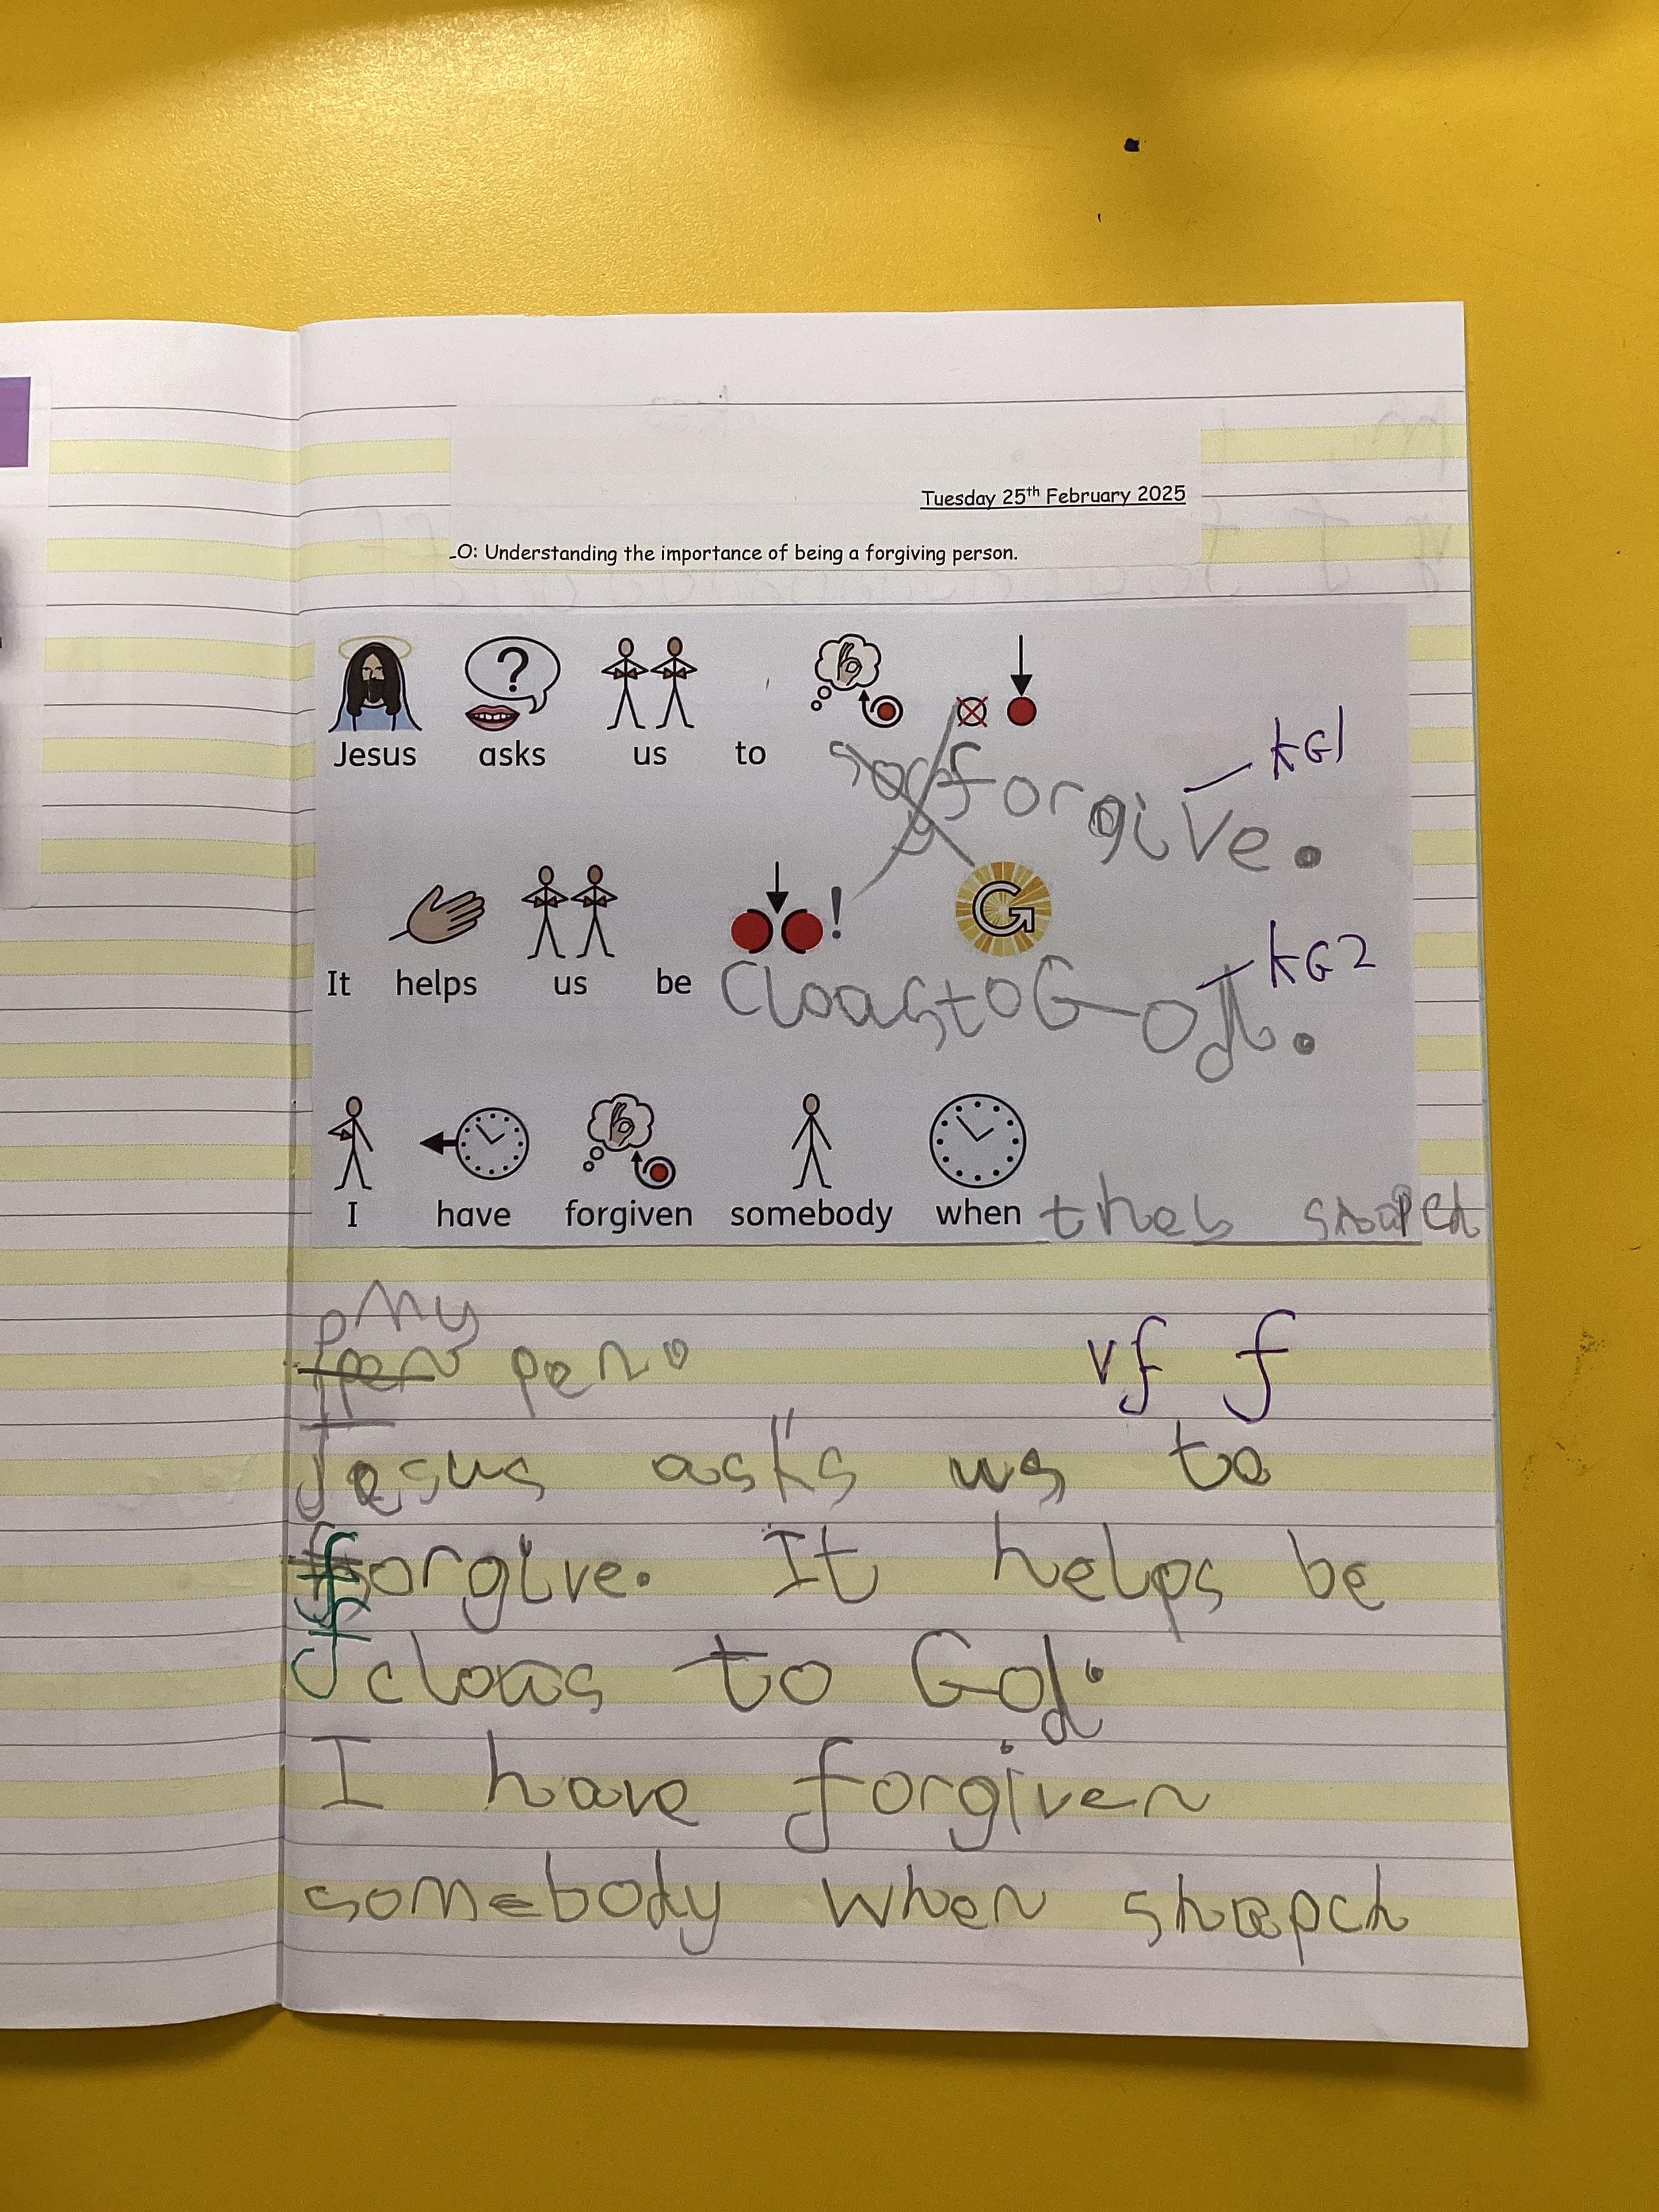 Tuesday 25th February 2025
LO: Understanding the importance of being a forgiving person.
Jesus asks us to forgive. KG1
It helps us be Cloasto God. KG2
I have forgiven somebody when theb
my
pen
vf f
Jesus asks us to
forgive. It helps be
cloas to God.
I have forgiven
somebody when shapch